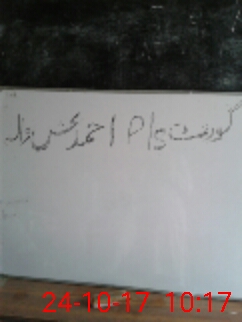 گورنمنٹ P/S احمد بخش
24-10-17 10:17